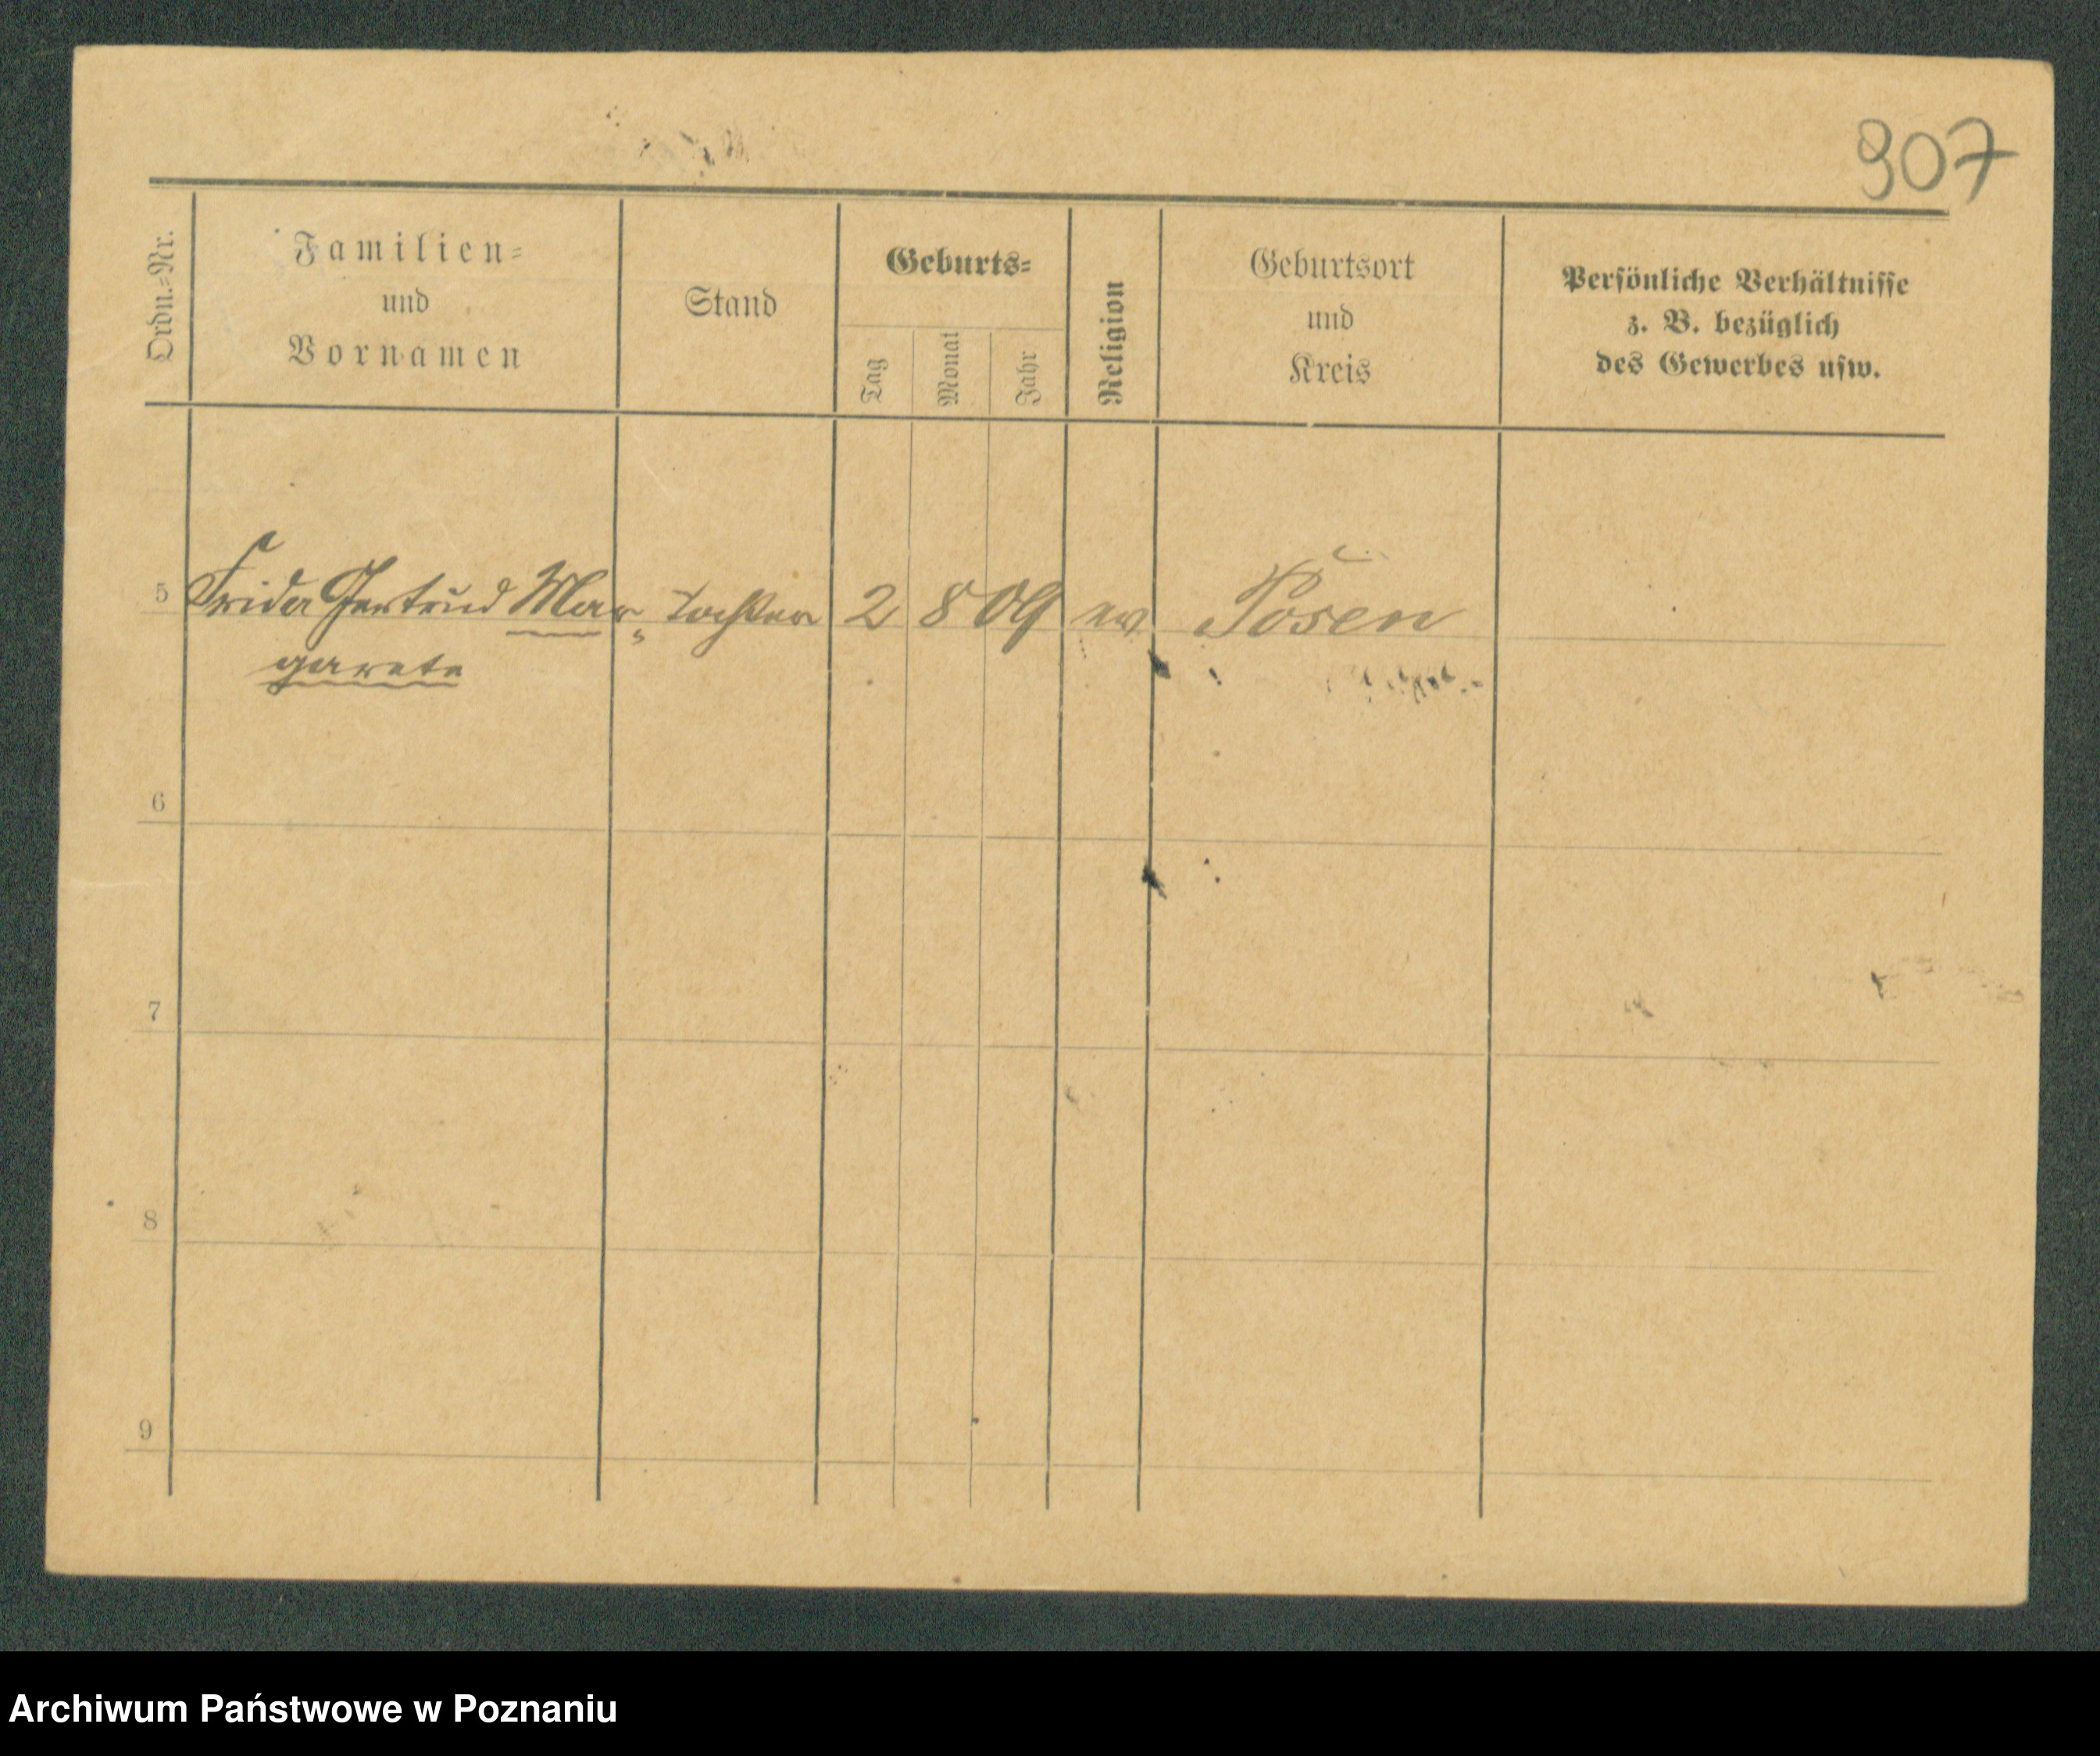 907
Ordn.=Nr.
Familien=
und
Vornamen
Stand
Geburts=
Tag
Monat
Jahr
Religion
Geburtsort
und
Kreis
Persönliche Verhältnisse
z. B. bezüglich
des Gewerbes usw.
5 Frida Gertrud Mar„ Tochter 2 8 09 ev Posen
garete
6
7
8
9
Archiwum Państwowe w Poznaniu